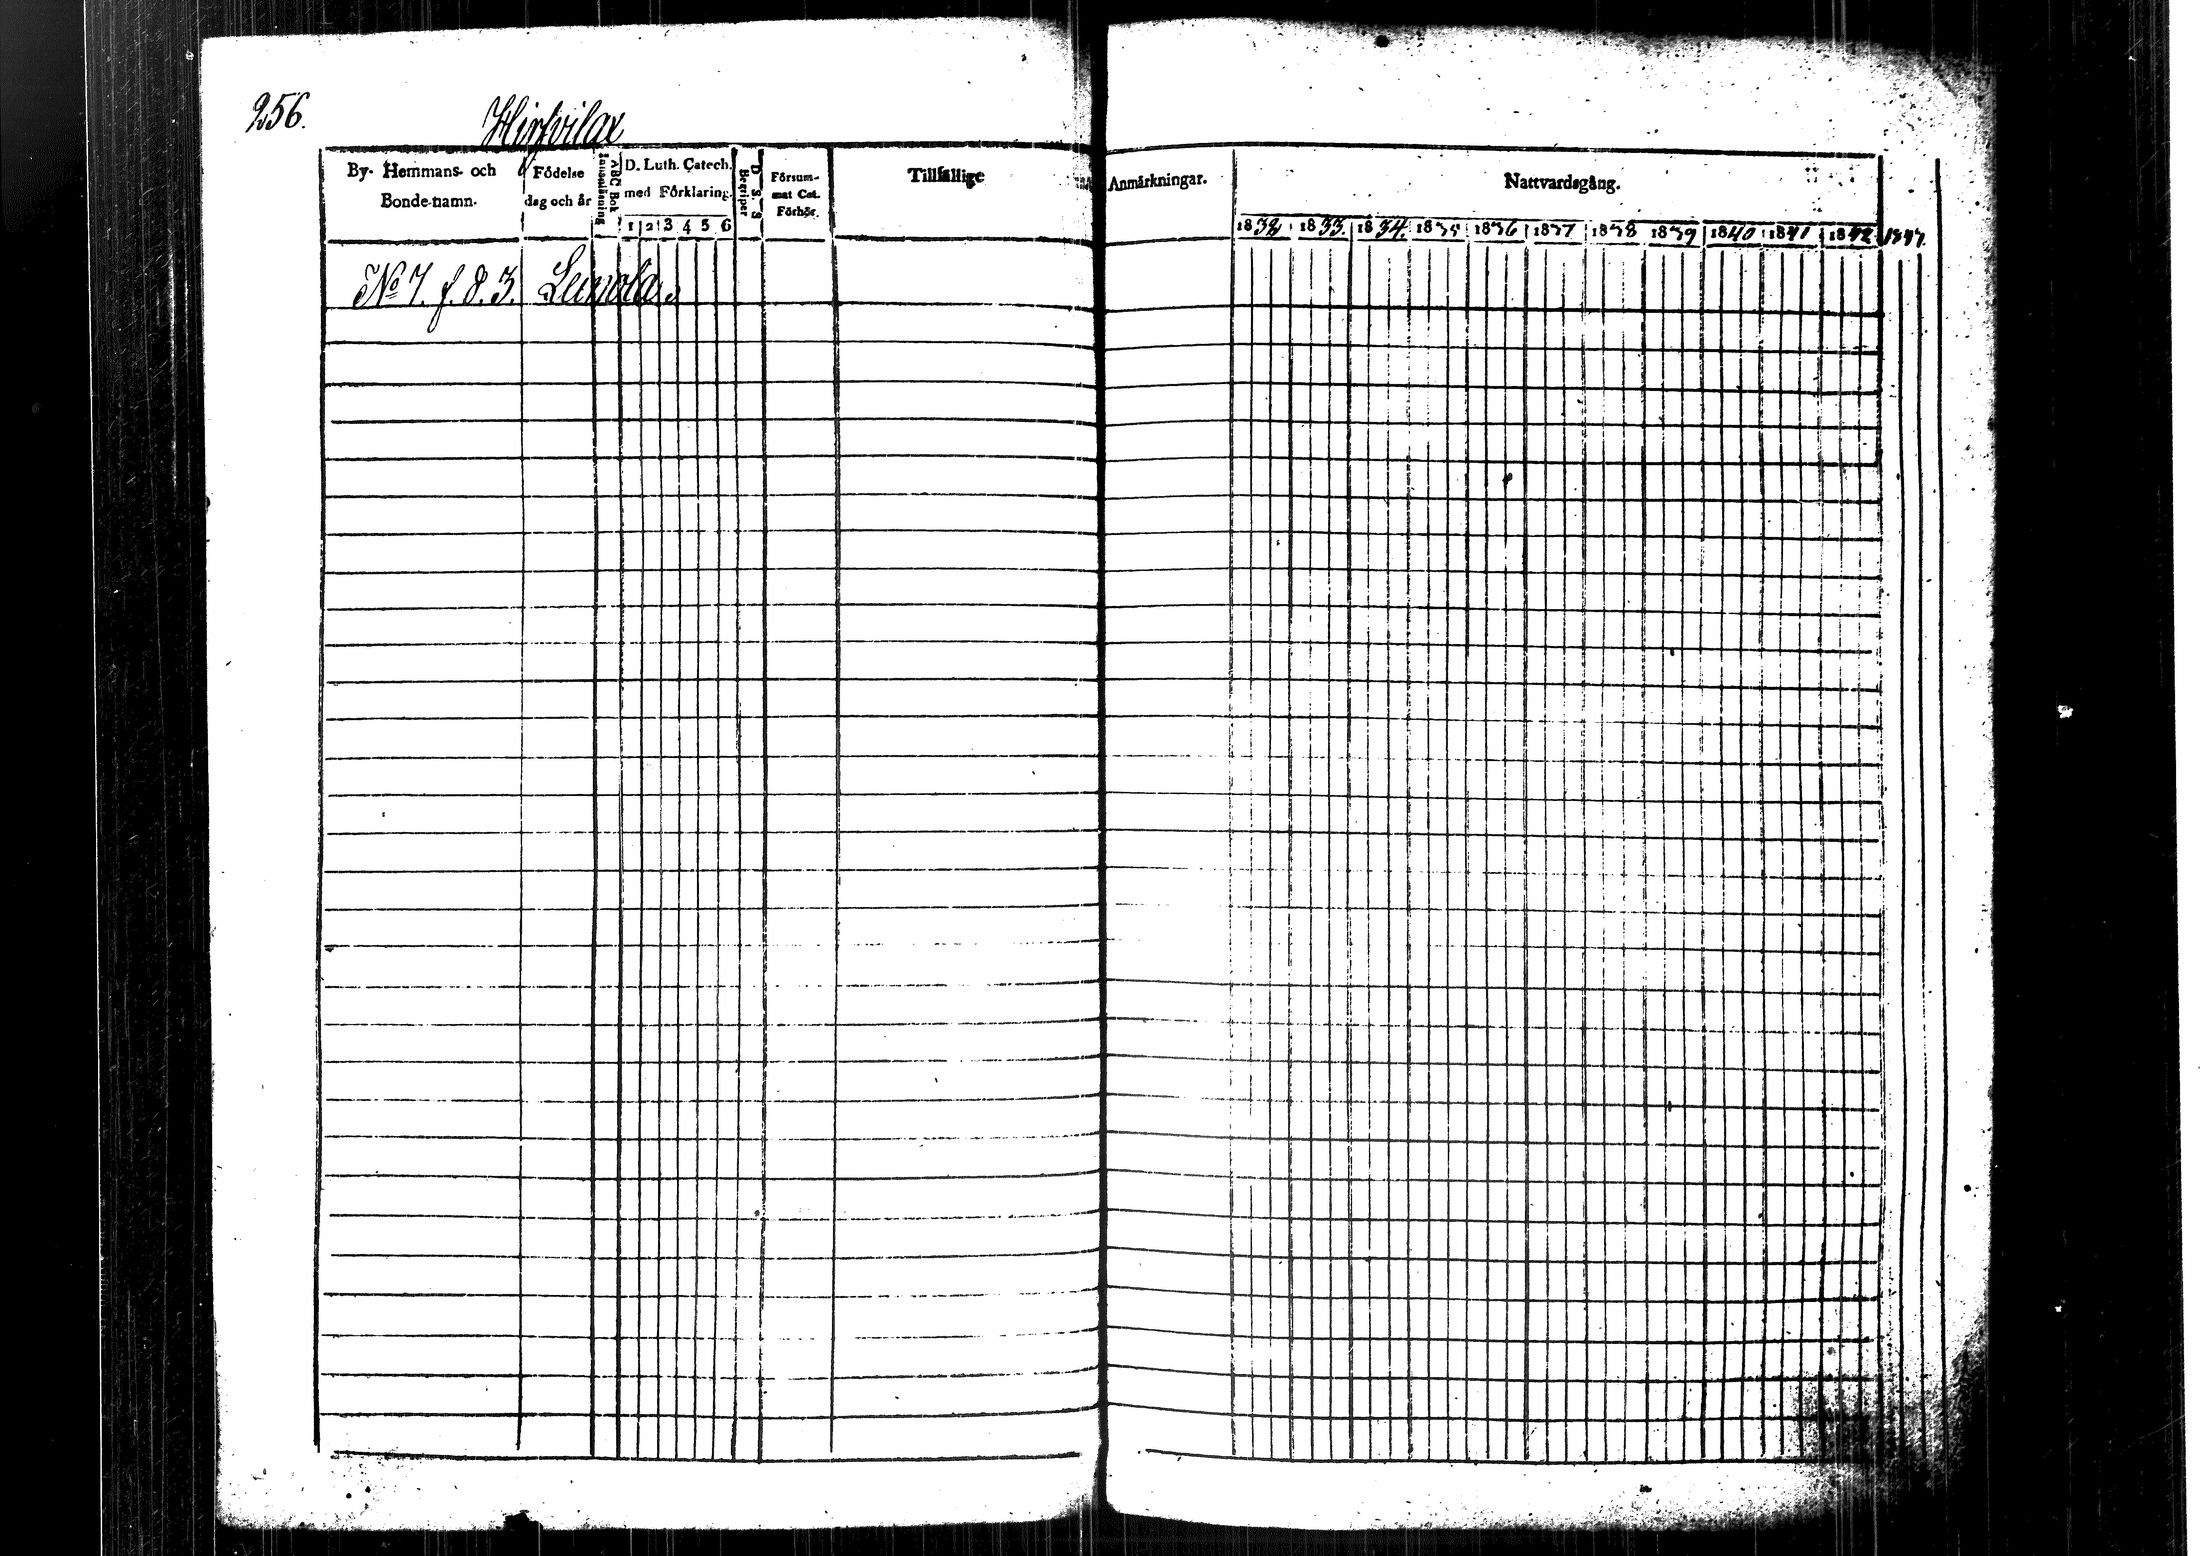 256.
Hirfvilax
By- Hemmans- och Bonde-namn.
Födelse dag och år
Innanläsning
ABC Bok
D. Luth. Catech. med Förklaring.
1 2 3 4 5 6
D. S. S Begriper
Försum-mat Cat. Förhör.
Tillfällige Anmärkningar.
Nattvardsgång.
1832 1833 1834. 1835 1836 1837 1838 1839 1840 1841 1842 1843.
No 7. f. 8. 3.